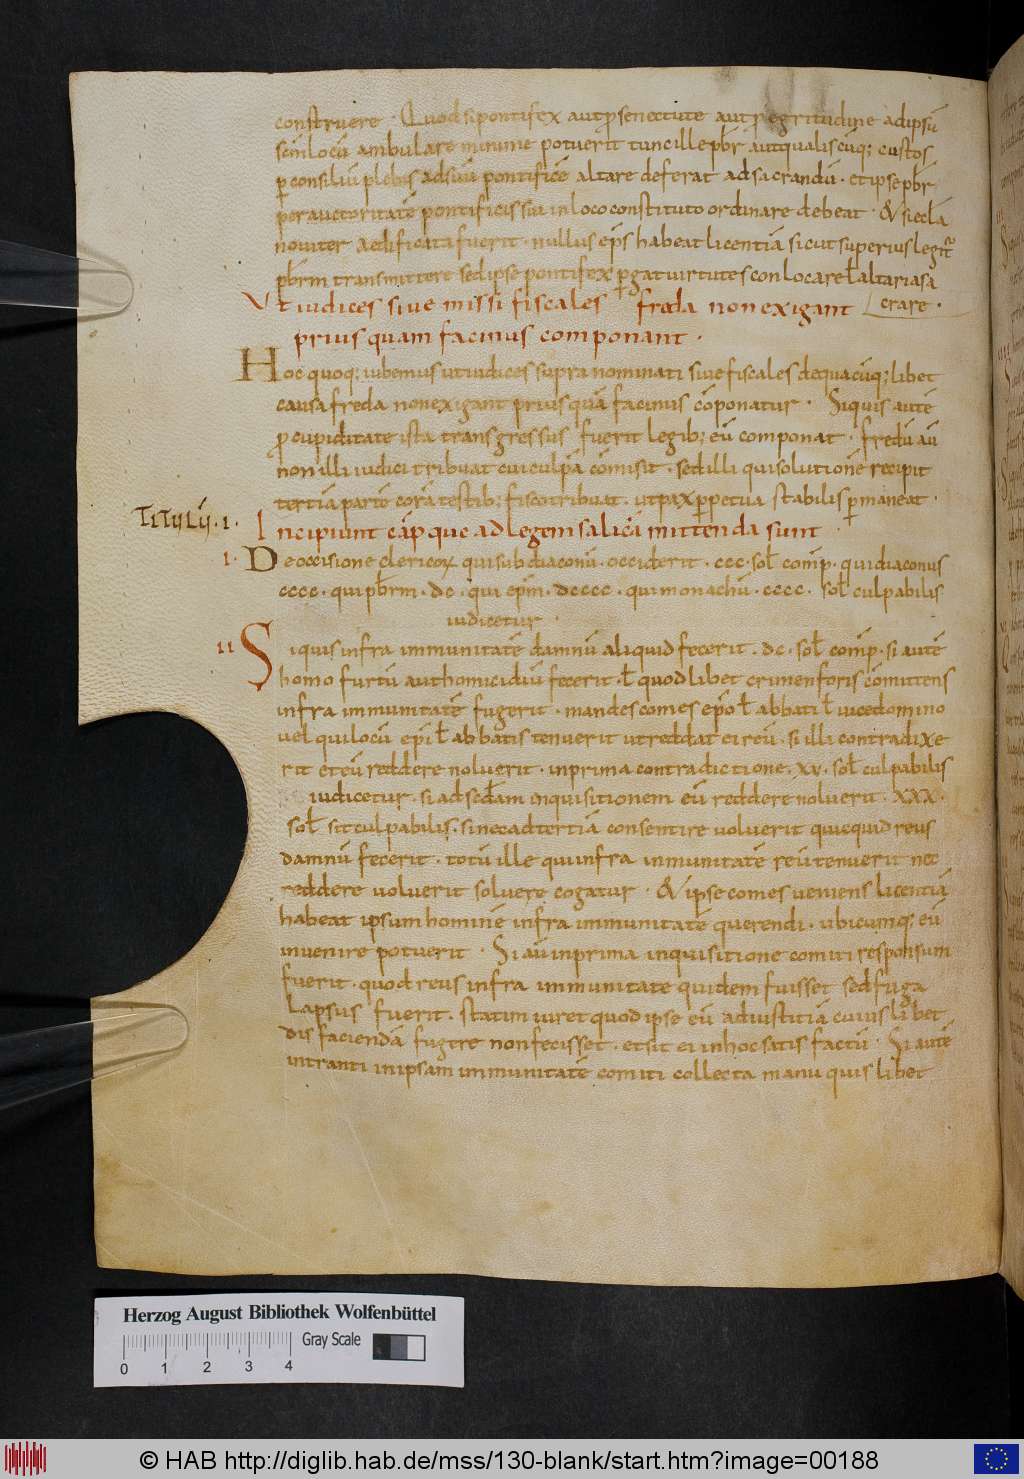 construere · Quod si pontifex aut p senectute aut p egritudine ad ipsū
scm̄ locū ambulare minime potuerit tunc ille pbr̄ aut qualiscūq; custos
p consiliū plebis ad suū pontificē altare deferat ad sacrandū · et ipse pbr̄
per auctoritatē pontificis sui in loco constituto ordinare debeat · & si eclā
noviter aedificata fuerit · nullus ep̄s habeat licentiā sicut superius legit̃
pbr̄m transmittere sed ipse pontifex p gat virtutes conlocare ł altaria sa
crare ·
Ut iudices sive missi fiscales freda non exigant
prius quam facinus componant ·
Hoc quoq; iubemus ut iudices supra nominati sive fiscales de quacūq; libet
causa freda non exigant prius quā facinus cōponatur · Si quis autē
p cupiditate ista transgressus fuerit legib; eū componat · fredū aū
non illi iudici tribuat cui culpā cōmisit · sed illi qui solutionē recipit
tertiā partē corā testib; fisco tribuat · ut pax p petua stabilis p maneat ·
TITULI · I ·
Incipiunt cap̄ que ad legem salicā mittenda sunt
I · De occisione clericoꝝ qui subdiaconū · occiderit · ccc · soł comp̄ · qui diaconus
cccc · qui pbr̄m · dc · qui ep̄m · dcccc · qui monachū · cccc · soł culpabilis
iudicetur ·
II Si quis infra immunitatē damnū aliquid fecerit · dc · soł comp̄ · si autē
homo furtū aut homicidiū fecerit · ł quodlibet crimen foris cōmittens
infra immunitatē fugerit · mandes comes ep̄o ł abbati ł vicedomino
vel qui locū ep̄i ł abbatis tenuerit ut reddat ei reū · si illi contradixe
rit et eū reddere noluerit · in prima contradictione · xv · soł culpabilis
iudicetur · si ad sedam inquisitionem eū reddere noluerit · xxx ·
soł sit culpabilis · si nec ad tertiā consentire voluerit quicquid reus
damnū fecerit · totū ille qui infra inmunitatē reū tenuerit nec
reddere voluerit solvere cogatur · & ipse comes veniens licentiā
habeat ipsum hominē infra immunitatē querendi · ubicumq; eū
invenire potuerit · Si aū in prima inquisitione comiti responsum
fuerit · quod reus infra immunitate quidem fuisset sed fuga
lapsus fuerit · statim iuret quod ipse eū ad iustitiā cuius libet
dis faciendā fugere non fecisset · et sit ei in hoc satis factū · Si autē
intranti in ipsam immunitatē comiti collecta manu quislibet
Herzog August Bibliothek Wolfenbüttel
Gray Scale
0 1 2 3 4
© HAB http://diglib.hab.de/mss/130-blank/start.htm?image=00188